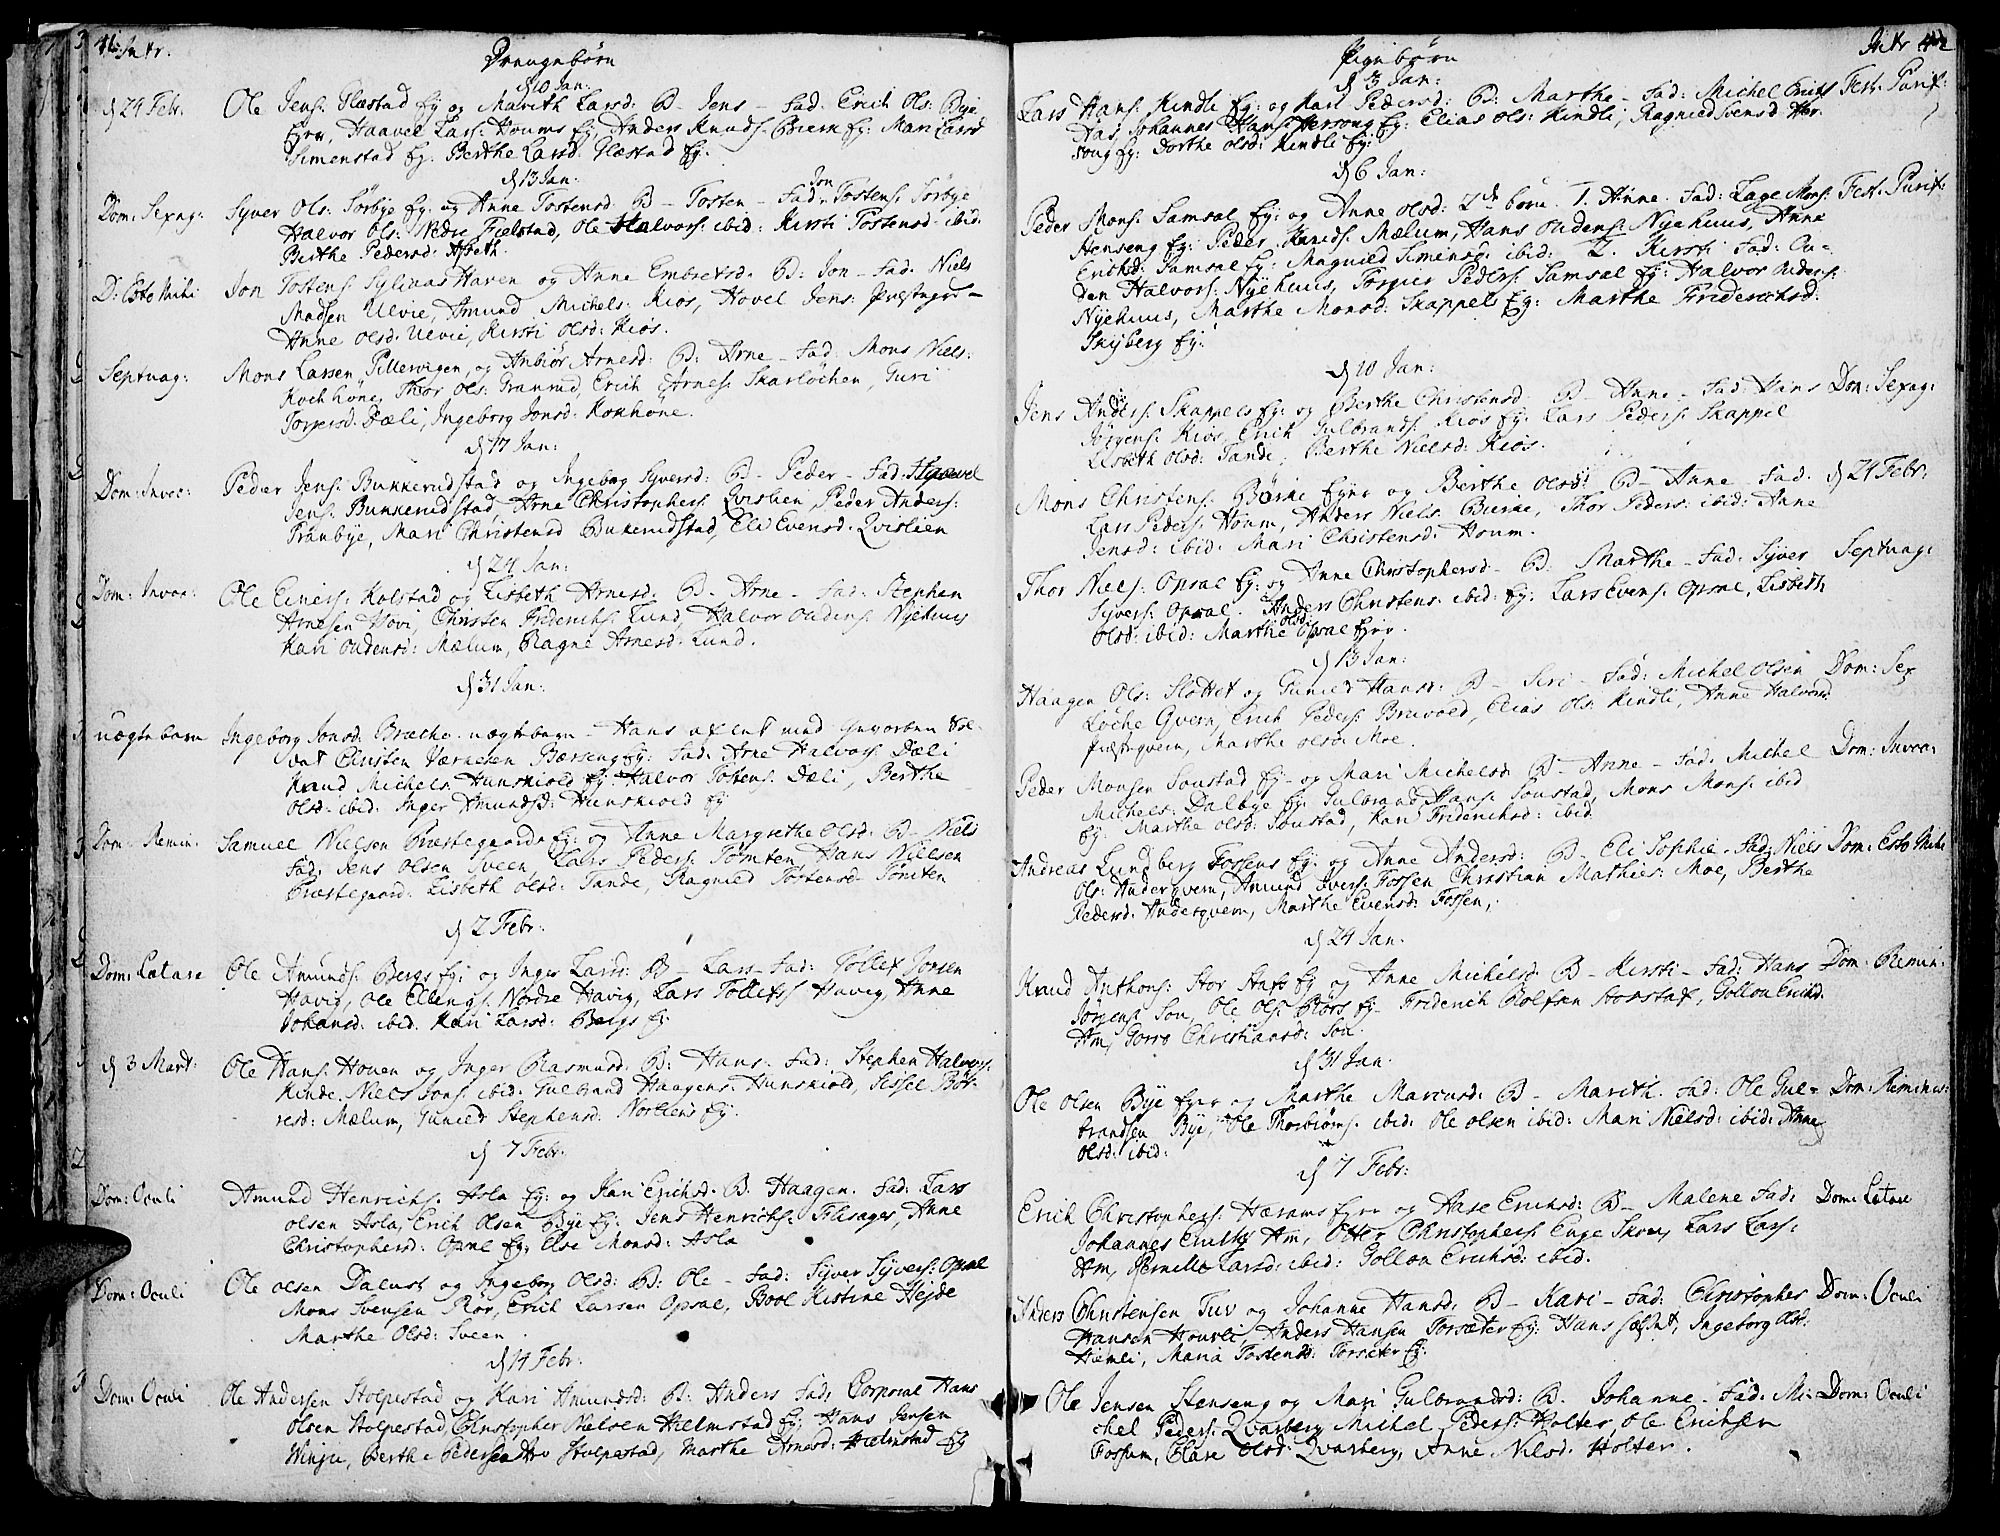 Intr.
Drengebørn
d 10 Jan:
d 24 Febr. Ole Jens: Næstad Ey og Marith Larsd: B_ Jens _ Fad: Erich Ols: Bye
Eyer, Haavel Lars: Houms Ey, Anders Knuds: Bierke Ey: Mari Larsd
Simenstad Ey. Berthe Larsd. Næstad Ey.
d 13 Jan:
Dom: Sexag: Syver Ols: Sørbye Ey. og Anne Tostensd: B_ Tosten _ Fad: Jon Tostens: Sørbye
Halvor Ols: Nedre Fielstad, Ole Halvors: ibid: Kirsti Tostensd: ibid:
Berthe Pedersd:
D: Esto Mihi Jon Tostens: Haven og Anne Embretsd. B: Jon _ Fad. Niels
Madsen Ulvie, Amund Michels: Kios, Hovel Jens:
Anne Olsd: Ulvie, Kirsti Olsd: Kios.
Septuag: Mons Larsen Pillervigen, og Anbiør Arnesd: B: Arne _ Fad: Mons Niels:
Kochhone, Thor Ols: Granrud, Erich Arnes: Skarløchen, Guri
Torgersd: Dæli, Ingeborg Jonsd: Kokhone.
d 17 Jan:
Dom: Invoc: Peder Jens: Bukkerudstad og Ingebog Syversd: B_ Peder _ Fad:
Jens: Bukkerudstad, Arne Christophers: Qvislien, Peder Anders:
Franbye, Mari Christensd Bukerudstad, Eli Evensd: Qvislien
d 24 Jan:
Dom: Invoc: Ole Einers: Kolstad og Lisbeth Arnesd: B_ Arne _ Fad: Stephen
Arnesen Hovi, Christen Friderichs: Lund, Halvor Oudens: Nyehuus
Kari Oudensd: Mælum, Ragne Arnesd: Lund.
d 31 Jan:
uægte barn Ingeborg Jonsd: Bræche uægtebarn _ Hans avlet med
Christen Værnesen Berseng Ey: Fad: Arne Halvors: Dæli
Knud Michels: Hunskiold Ey: Halvor Tostens: Dæli, Berthe
Olsd: ibid: Inger Amundsd: Hunskiold Ey
Dom: Remin: Samuel Nielsen Præstegaards Ey: og Anne Margrethe Olsd: B_ Niels
Fad: Jens Olsen Sveen, Lars Peders: Tomten, Hans Nielsen
Præstegaard. Lisbeth Olsd: Tande, Ragnild Tostensd: Tomten
d 2 Febr:
Dom: Lætare Ole Amunds: Bergs Ey: og Inger Larsd: B_ Lars _ Fad: Tollef Jonsen
Havig, Ole Ellengs: Nordre Havig, Lars Tollefs: Havig, Anne
Johansd: ibid. Kari Larsd: Bergs Ey:
d 3 Mart: Ole Hans: Hoven og Inger Rasmusd: B: Hans: Fad: Stephen Halvors:
Kinde, Niels Jons: ibid: Gulbrand Haagens: Hunskiold, Sissel Bør-
resd: Mælum, Gunild Stephensd: Ey.
d 7 Febr:
Dom: Oculi Amund Henrichs: Asla Ey: og Kari Erichsd. B: Haagen. Fad: Lars
Olsen Asla, Erich Olsen Bye Ey: Jens Henrichs: Flisager, Anne
Christophersd: Opsal Ey: Else Monsd: Asla
Dom: Oculi Ole Olsen Dalust og Ingeborg Olsd: B: Ole _ Fad: Syver Syvers: Opsal
Mons Svensen Rør, Erich Larsen Opsal, Bool Kistine Hejde
Marthe Olsd: Sveen.
d 14 Febr:
Dom: Oculi Ole Andersen Stolpestad og Kari Amundsd: B: Anders Fad: Corporal Hans
Olsen Stolpestad, Christopher Nielsen Helmstad Ey: Hans Jensen
Winju, Berthe Stolpestad, Marthe Arnesd: Hielmstad Ey
Intr
Pigebørn
d 3 Jan:
Lars Hans: Kindli Ey: og Kari Pedersd: B: Marthe _ Fad: Michel Erichs: Fest: Purif:
Aas, Johannes Hans: Ey: Elias Ols: Kindli, Ragnild Svensd
Ey: Dorthe Olsd: Kindli Ey:
d 6 Jan:
Peder Mons: Samsal Ey: og Anne Olsd: 2de børn. 1. Anne. Fad: Lage Mons: Fest: Purif:
Henseng Ey: Peder Knuds: Mælum, Hans Oudens: Nyehuus, Anne
Erichsd: Samsal Ey: Magnild Simensd: ibid: 2. Kirsti Fad: Ou-
den Halvors: Nyehuus, Torgier Peders: Samsal Ey: Halvor Oudens:
Nyehuus, Marthe Monsd: Skappels Ey: Marthe Friderichsd:
Skyberg Ey:
d 10 Jan:
Jens Anders: Skappels Ey: og Berthe Christensd B_ Anne _ Fad: Hans Dom: Sexag:
Jørgens: Kios, Erich Gulbrands: Kios Ey: Lars Peders: Skappel
Lisbeth Olsd: Tande, Berthe Nielsd: Kios.
Mons Christens: Børke Eyer og Berthe Olsd: B_ Anne _ Fad. d 24 Febr:
Lars Peders: Houm, Anders Niels: Bierke, Thor Peders: ibid: Anne
Jensd: ibid: Mari Christensd: Houm.
Thor Niels: Opsal Ey: og Anne Christophersd_ B: Marthe _ Fad: Syver Septuag:
Syvers: Opsal. Anders Christens: ibid: Ey: Lars Evens: Opsal, Lisbeth
Olsd: ibid: Marthe Olsd: Opsal Eyer.
d 13 Jan:
Haagen Ols: Slottet og Gunild Hansd: B_ Siri _ Fad: Michel Olsen Dom: Sex
Løche Qvern, Erich Peders: Bruvold, Elias Ols: Kindli, Anne Halvorsd
Præstqvern, Marthe Olsd: Moe.
Peder Monsen Soustad Ey_ og Mari Michelsd: B_ Anne _ Fad: Michel Dom: Invoc:
Michels: Dalbye Ey: Gulbrand Hans: Soustad, Mons Mons: ibid
Ey: Marthe Olsd: Soustad, Kari Friderichsd: ibid
Andreas Lundberg Fossens Ey: og Anne Andersd: B_ Eli Sophie _ Fad: Niels Dom: Esto Mihi
Ols: Anderqvern, Amund Ivers: Fossen, Christian Mathies: Moe, Berthe
Pedersd: Anderqvern, Marthe Evensd: Fossen,
d 24 Jan:
Knud Anthons: Stor Ey og Anne Michelsd: B_ Kirsti _ Fad: Hans Dom: Remin:
Jørgens: Son, Ole Ols: Rørs Ey_ Friderich Rolfsen, Gollou Erichsd.
Am, Gorro Christiansd: Son.
d 31 Jan:
Ole Olsen Bye Eyer og Marthe Marcusd: B_ Marith. Fad: Ole Gul= Dom: Reminis:
brandsen Bye, Ole Thorbiørns: ibid: Ole Olsen ibid: Mari Nielsd: ibid: Anne
Olsd: ibid:
d 7 Febr:
Erich Christophers: Hærams Eyer og Aase Erichsd: B_ Malene Fad: Dom: Lætare
Johannes Erichs: Am, Otter Christophers: Enge Skoug, Lars Lars:
Am, Pernille Larsd: ibid: Gollou Erichsd: ibid.
Anders Christensen Tuv og Johanne Hansd: B_ Kari _ Fad: Christopher Dom: Oculi
Hansen Hourli, Anders Hansen Torsæter Ey: Hans, Ingeborg Olsd:
Hiemli, Maria Tostensd: Torsæter Ey:
Ole Jensen Stenseng og Mari Gulbrandsd: B. Johanne _ Fad: Mi- Dom: Oculi
chel Peders: Qvarberg, Michel Peders: Holter, Ole Erichsen
Fossum, Clare Olsd: Qvarberg, Anne Nilsd: Holter.